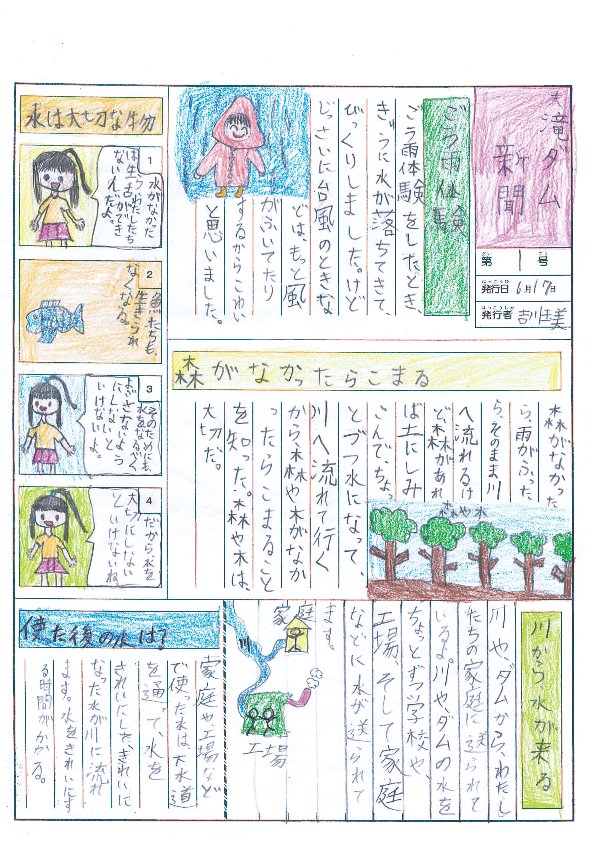 大滝ダム
新聞
第1号
発行日 6月17日
はっこうしゃ
発行者
ごう雨体験
ごう雨体験をしたとき、
きゅうに水が落ちてきて、
びっくりしました。けど
じっさいに台風のときな
どは、もっと風
がふいてたり
するからこわい
と思いました。
水は大切な物
1
水がなかった
らわたしたち
は生活ができ
ないんだよ。
2
魚たちも、
生きられ
なくなる。
3
そのためにも、
水をなるべく
よごさないよう
にしないと
いけないよ。
4
だから水を
大切にしない
といけないね。
森がなかったらこまる
森がなかった
ら、雨がふった
ら、そのまま川
へ流れるけ
ど、森があれ
ば土にしみ
こんで、ちょっ
とづつ水になって、
川へ流れて行く
から、森や木がなか
ったらこまること
を知った。森や木は、
大切だ。
森や木
川から水が来る
川や、ダムから、わたし
たちの家庭に送られて
いるよ。川や、ダムの水を
ちょっとずつ学校や、
工場、そして家庭
などに水が送られて
ます。
家庭
川
工場
使た後の水は?
家庭や工場など
で使った水は、下水道
を通って、水を
きれいにした、きれいに
なった水が川に流れ
ます。水をきれいにす
る時間がかかる。